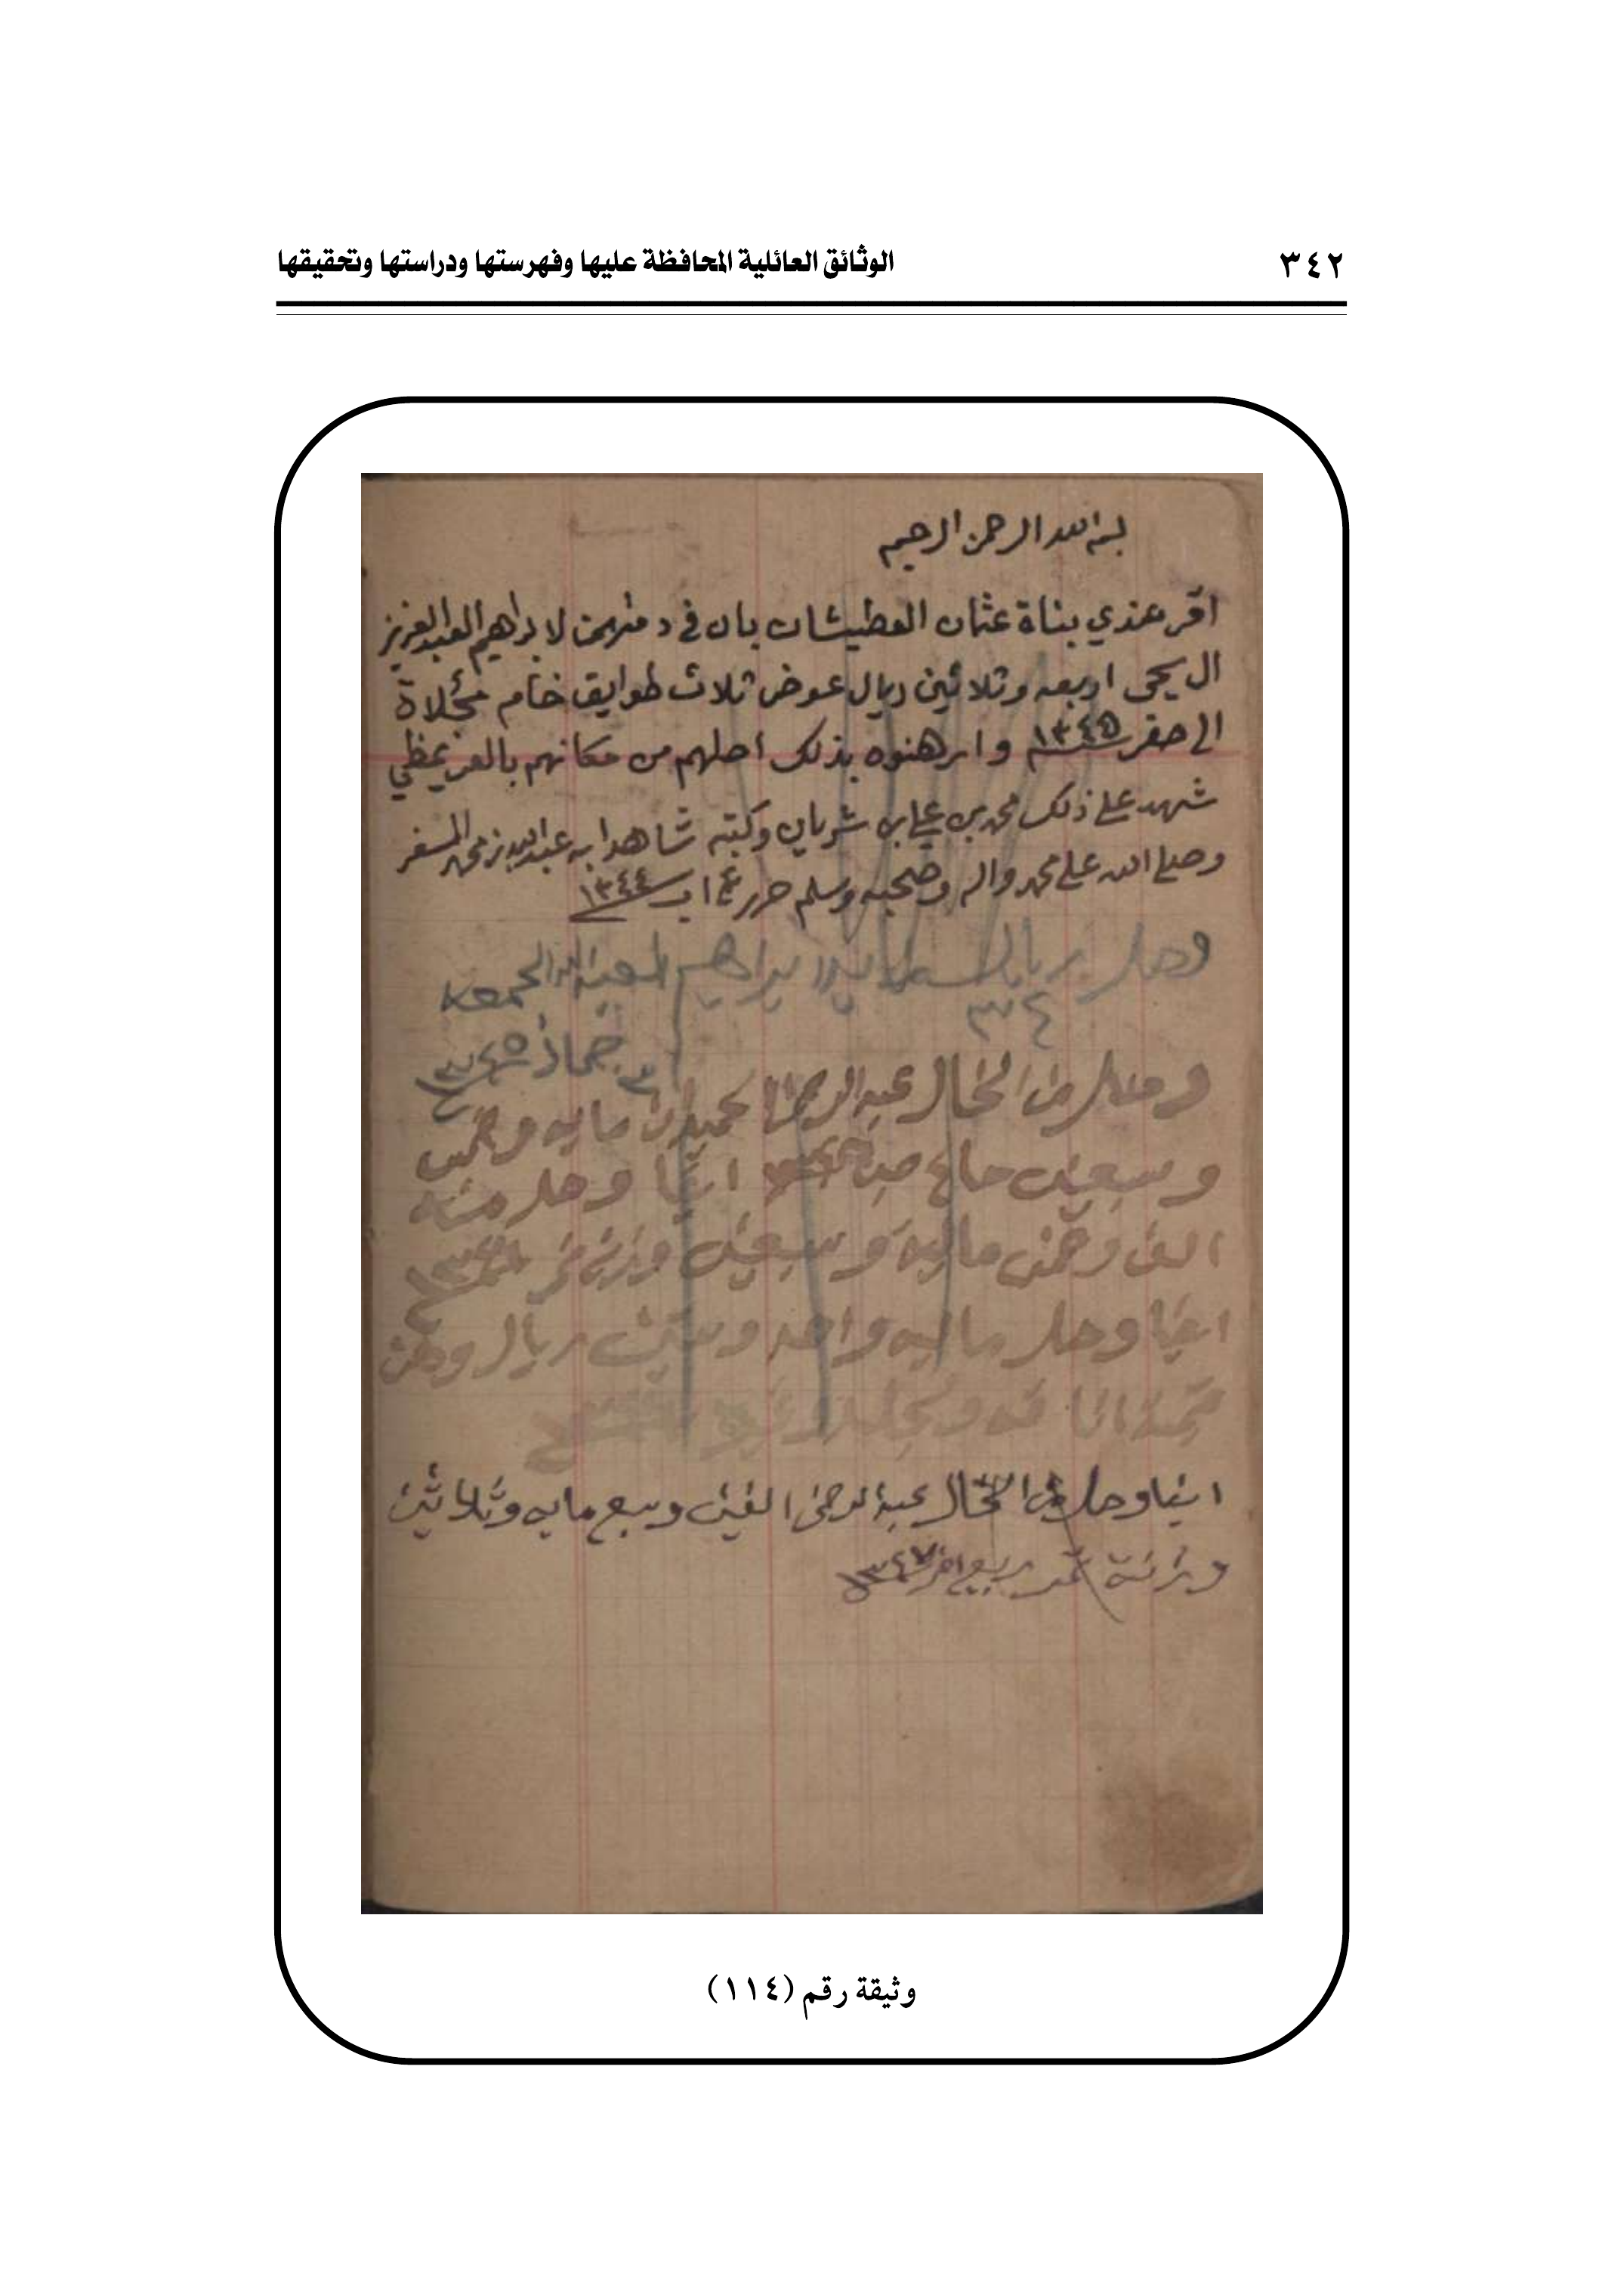 ٣٤٢
الوثائق العائلية المحافظة عليها وفهرستها ودراستها وتحقيقها
بسم الله الرحمن الرحيم
اقر عندي بناة عثمان العطيشان بان في ذمتهن لابراهيم العبدالعزيز
ال يحيى اربعه وثلاثين ريال عوض ثلاث طوايق خام مؤجلاة
الى صفر ١٣٤٥ وارهنوه بذلك اصلهم من مكانهم بالعريمظي
شهد على ذلك محمد بن علي بن شريان وكتبه شاهدا به عبدالله بن محمد المسفر
وصلى الله على محمد واله وصحبه وسلم حرر ١٣٤٤
وصل
ابراهيم
٣٤
٣ جماد ١٣٤٥
وصل من الخال عبدالرحمن الحميدان مايه وخمس
وسبعين صاع ايضا وصل منه
الف وخمس مايه وسبعين وزنة تمر
ايضا وصل مايه واحد وستين ريال وهن
ايضا وصل من الخال عبدالرحمن الفين وسبع مايه وثلاثين
وزنة تمر ربيع اخر ١٣٤٧
وثيقة رقم (١١٤)